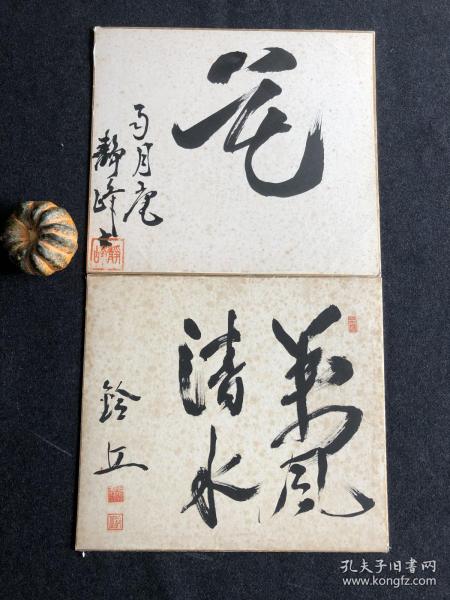 花
月庵
靜峰
風
清水
鈴丘
孔夫子旧书网
www.kongfz.com